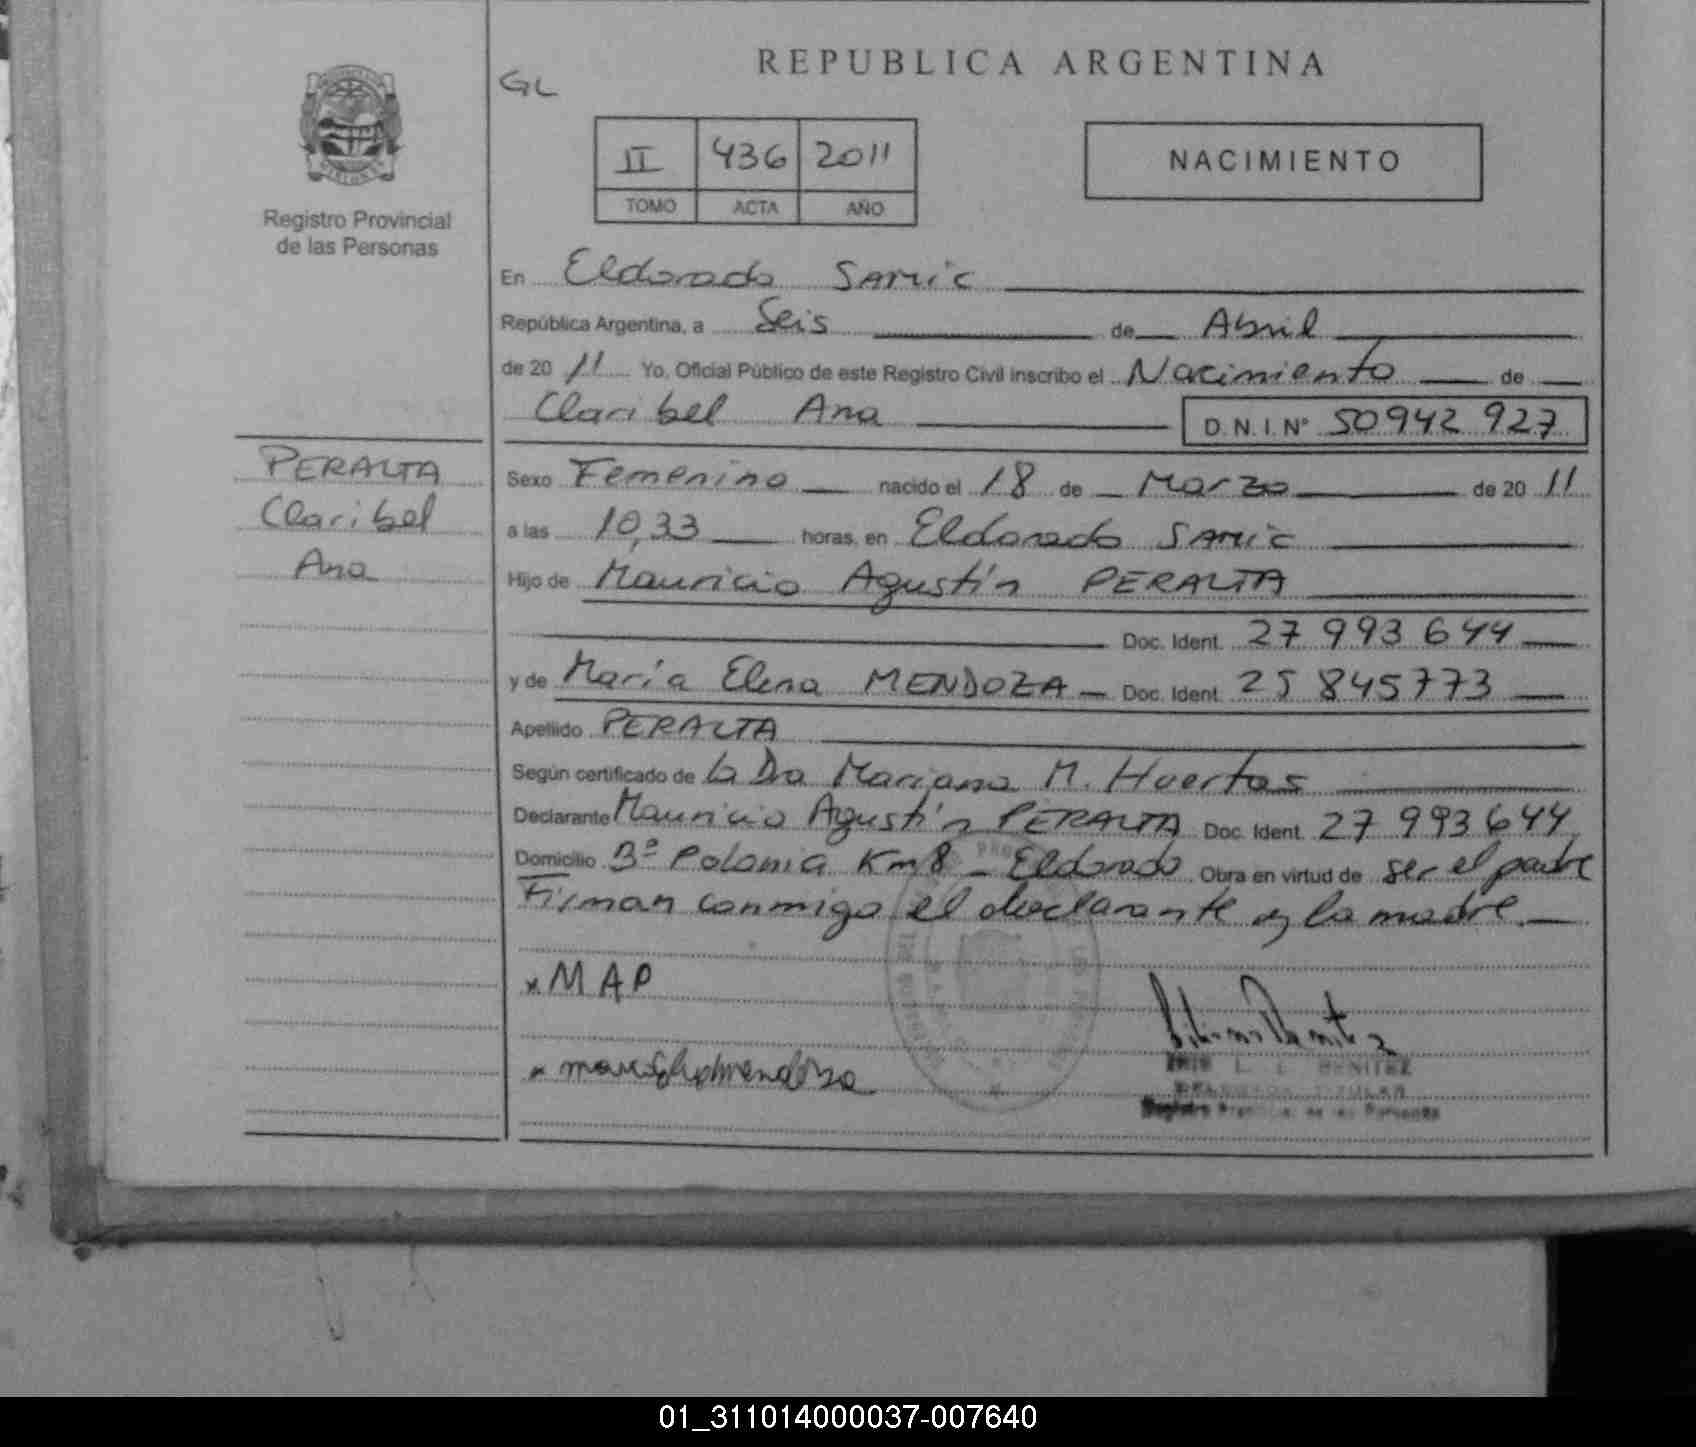 REPUBLICA ARGENTINA
GL
II 436 2011
TOMO ACTA AÑO
NACIMIENTO
Registro Provincial
de las Personas
En Eldorado SAMIC
República Argentina, a Seis de Abril
de 20 11 Yo, Oficial Público de este Registro Civil inscribo el Nacimiento de
Claribel Ana D.N.I. Nº 50942 927
PERALTA
Claribel
Ana
Sexo Femenino nacido el 18 de Marzo de 20 11
a las 10,33 horas, en Eldorado SAMIC
Hijo de Mauricio Agustín PERALTA
Doc. Ident. 27 993 644
y de María Elena MENDOZA Doc. Ident. 25 845773
Apellido PERALTA
Según certificado de la Dra Mariana M. Huertas
Declarante Mauricio Agustín PERALTA Doc. Ident. 27 993 644
Domicilio Bº Polonia Km 8 - Eldorado Obra en virtud de ser el padre
Firman conmigo el declarante y la madre.
x MAP
L. BENITEZ
DELEGADA TITULAR
Registro Provincial de las Personas
01_311014000037-007640